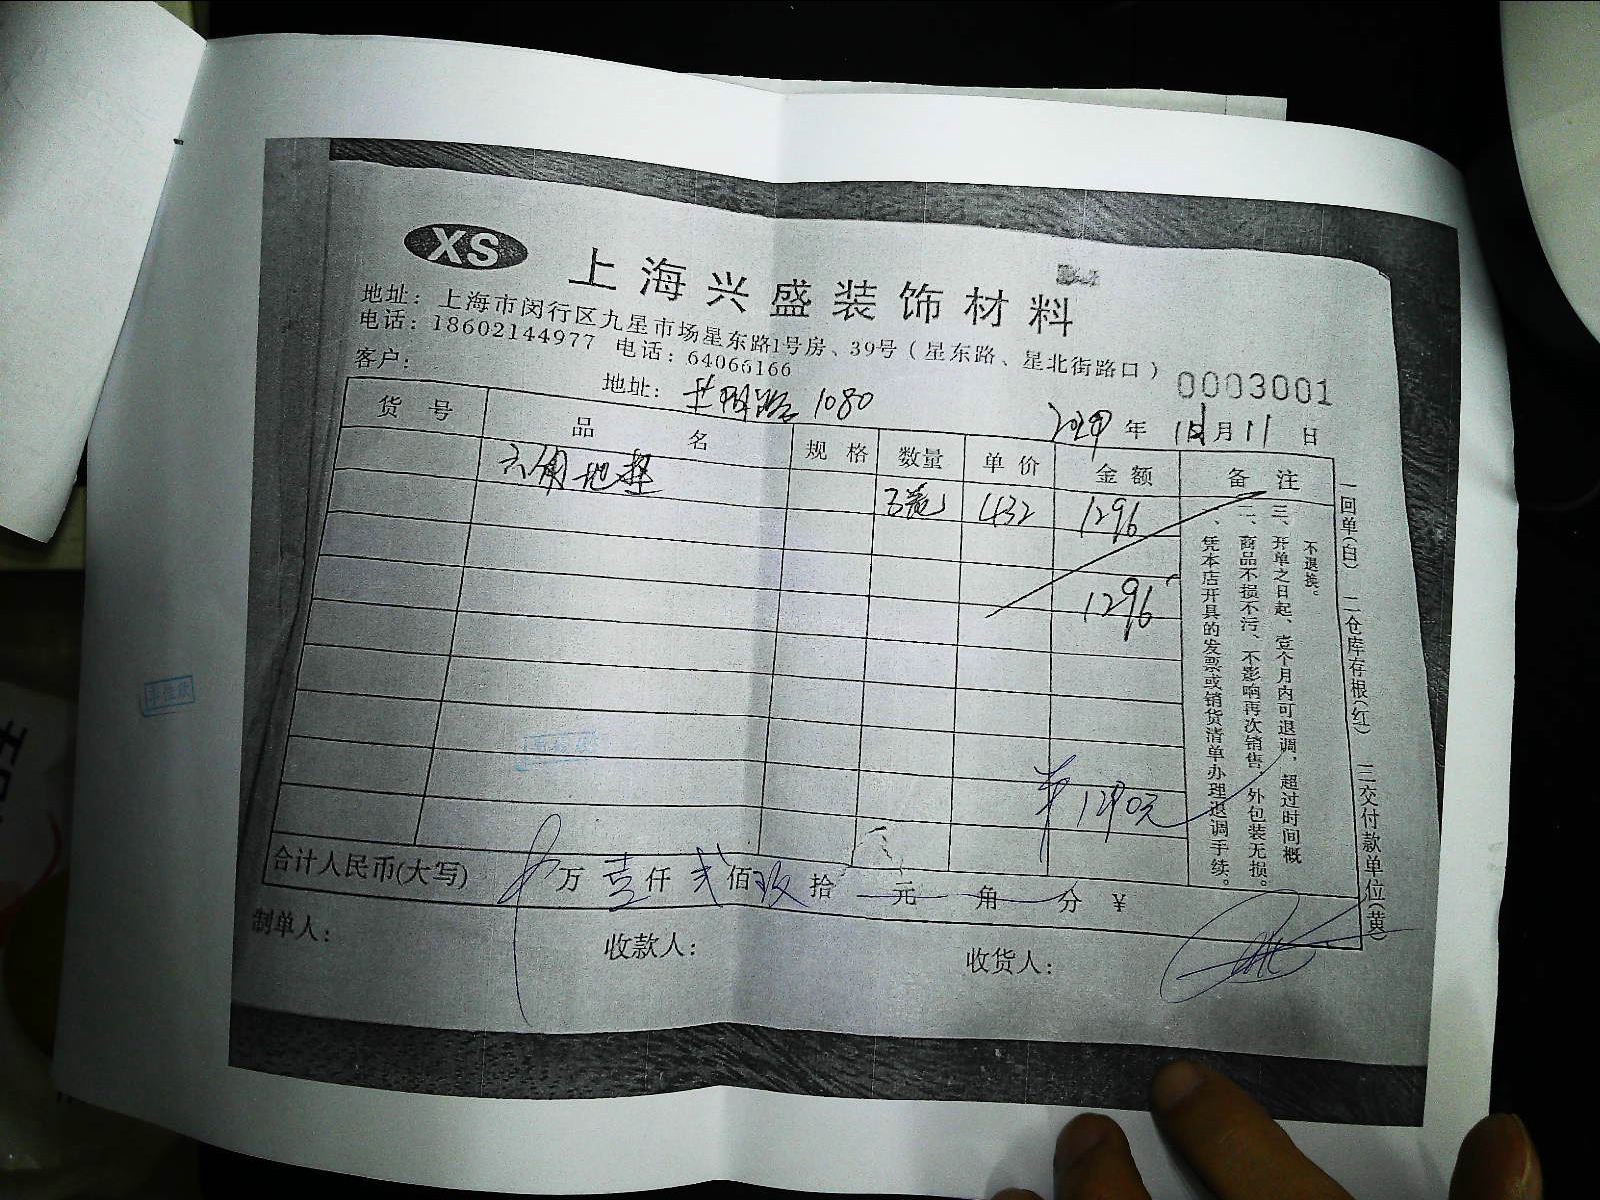 XS
上海兴盛装饰材料
地址：上海市闵行区九星市场星东路1号房、39号（星东路、星北街路口）
电话：18602144977 电话：64066166
客户： 地址： 1080
0003001
年 月 11 日
货号 品名 规格 数量 单价 金额 备注
六角地 432 1296
1296
1290元
一、凭本店开具的发票或销货清单办理退调手续。
二、商品不损不污、不影响再次销售，外包装无损。
三、开单之日起，壹个月内可退调，超过时间概
不退换。
一回单(白) 二仓库存根(红) 三交付款单位(黄)
合计人民币(大写) 万 壹 仟 贰 佰 玖 拾 元 角 分 ￥
制单人： 收款人： 收货人：